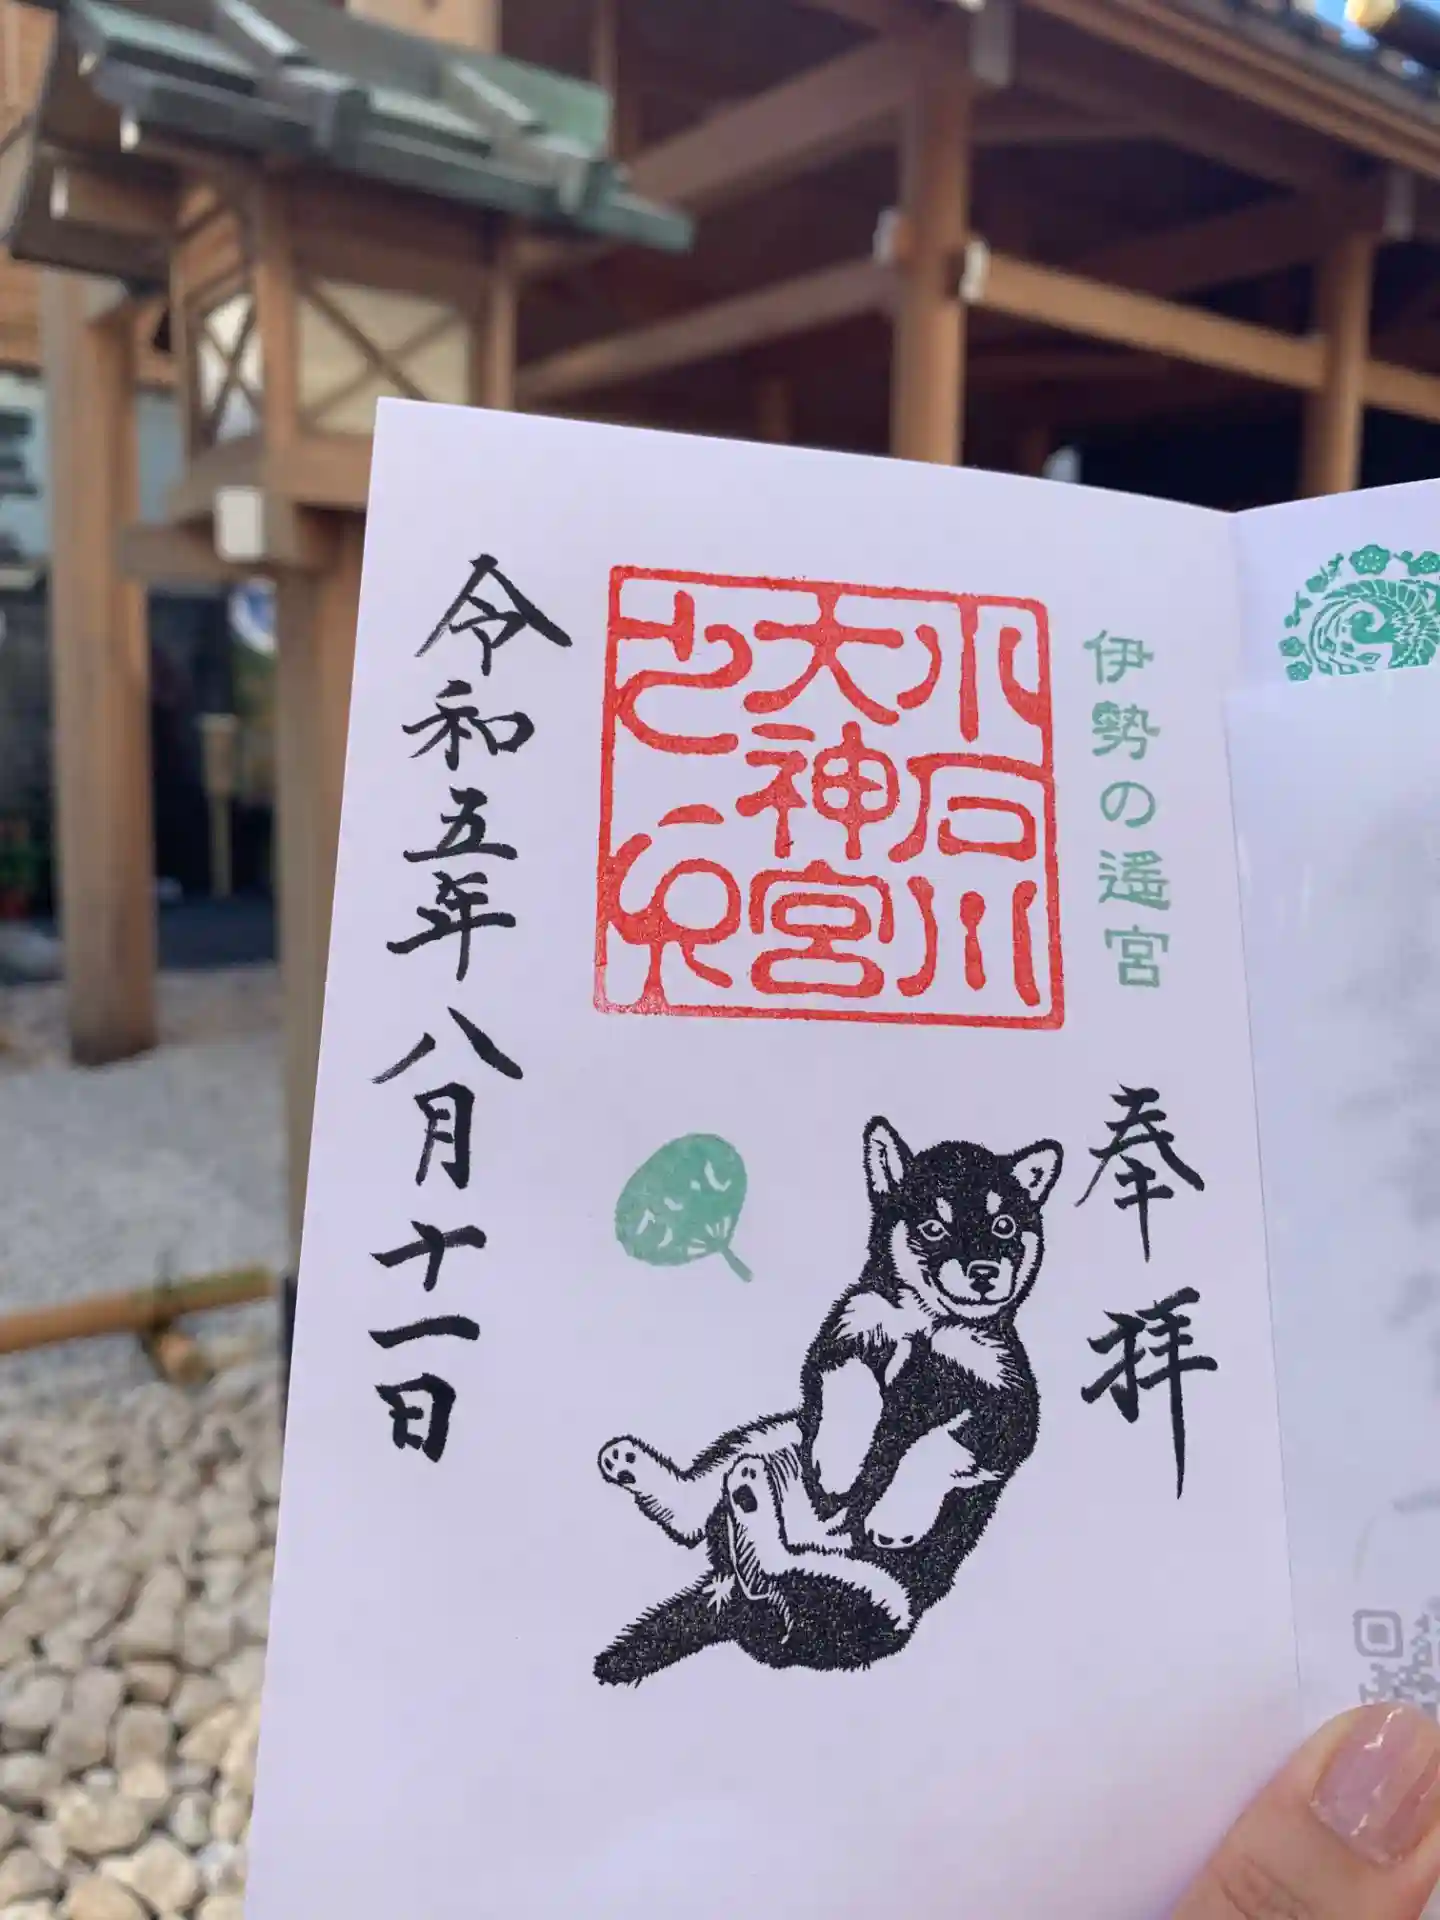 伊勢の遥宮
奉拝
小石川
大神宮
之印
令和五年八月十一日